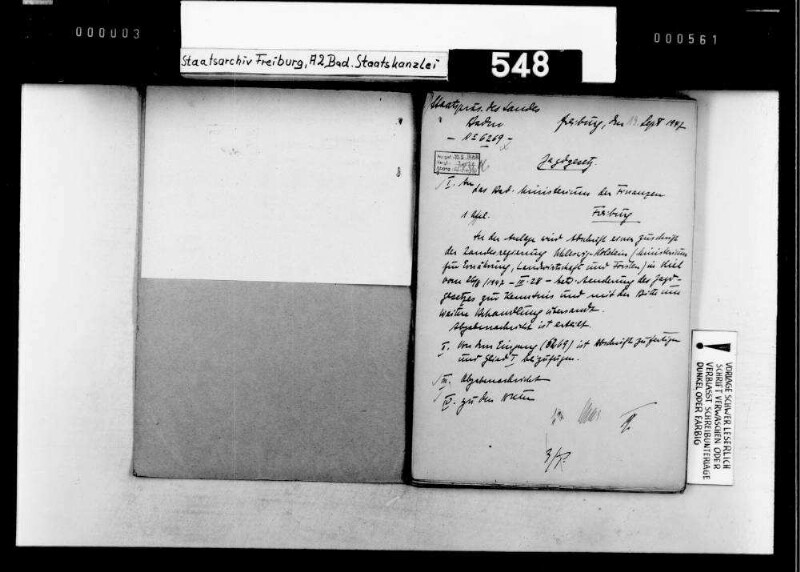 000003
000561
Staatsarchiv Freiburg, A2, Bad. Staatskanzlei
548
Staatspräs. des Landes
Baden
Freiburg, den 13. Sept 1947
- No 6269 -
Jagdgesetz.
I. An
das Bad. Ministerium der Finanzen
Freiburg
In der Anlage wird Abschrift einer Zuschrift
der Landesregierung Schleswig-Holstein (Ministerium
für Ernährung, Landwirtschaft und Forsten) in Kiel
vom 1947 - IV. 28 - betr. Aenderung des Jagd-
gesetzes zur Kenntnis und mit der Bitte um
weitere Behandlung übersandt.
Abgabenachricht ist erteilt.
II. Von dem Eingang (6269) ist Abschrift zu fertigen
und I beizufügen.
III. Abgabenachricht
IV. zu den Akten
VORLAGE SCHWER LESERLICH
SCHRIFT VERWASCHEN ODER
VERBLASST SCHREIBUNTERLAGE
DUNKEL ODER FARBIG